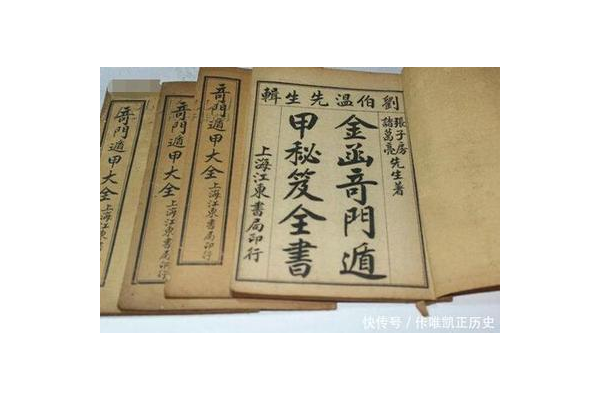 劉伯温先生輯
張子房
諸葛亮
先生著
金函奇門遁
甲秘笈全書
上海江東書局印行
奇門遁甲大全
上海江東書局印行
奇門遁甲大全
上海江東書局印行
奇門遁甲大全
上海江東
快传号／作唯凯正历史